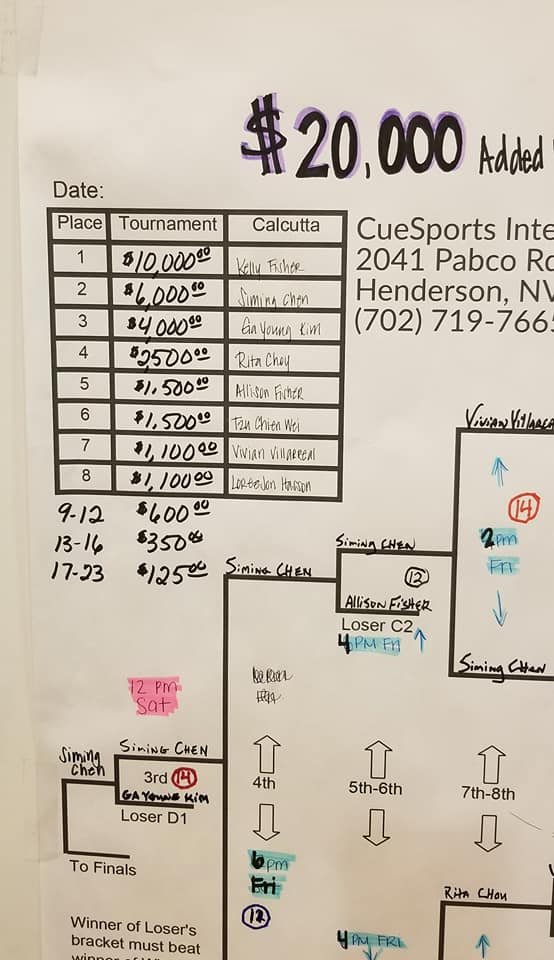 $20,000 Added
Date:
Place Tournament Calcutta
1 $10,000.00 Kelly Fisher
2 $6,000.00 Siming Chen
3 $4000.00 Ga Young Kim
4 $2500.00 Rita Choy
5 $1,500.00 Allison Fisher
6 $1,500.00 Tzu Chien Wei
7 $1,100.00 Vivian Villarreal
8 $1,100.00 LoreeJon Hasson
9-12 $600.00
13-16 $350.00
17-23 $125.00
CueSports Inte
2041 Pabco Rd
Henderson, NV
(702) 719-766
Vivian Villarea
14
2pm
Fri
Siming Chen
Siming CHEN
12
Allison Fisher
Loser C2
4 PM Fri
Siming CHEN
12 pm
Sat
Siming CHEN
Siming Chen
3rd 14
GA Young Kim
Loser D1
To Finals
4th
5th-6th
7th-8th
6pm
Fri
12
Rita Chou
4 PM FRI
Winner of Loser's
bracket must beat